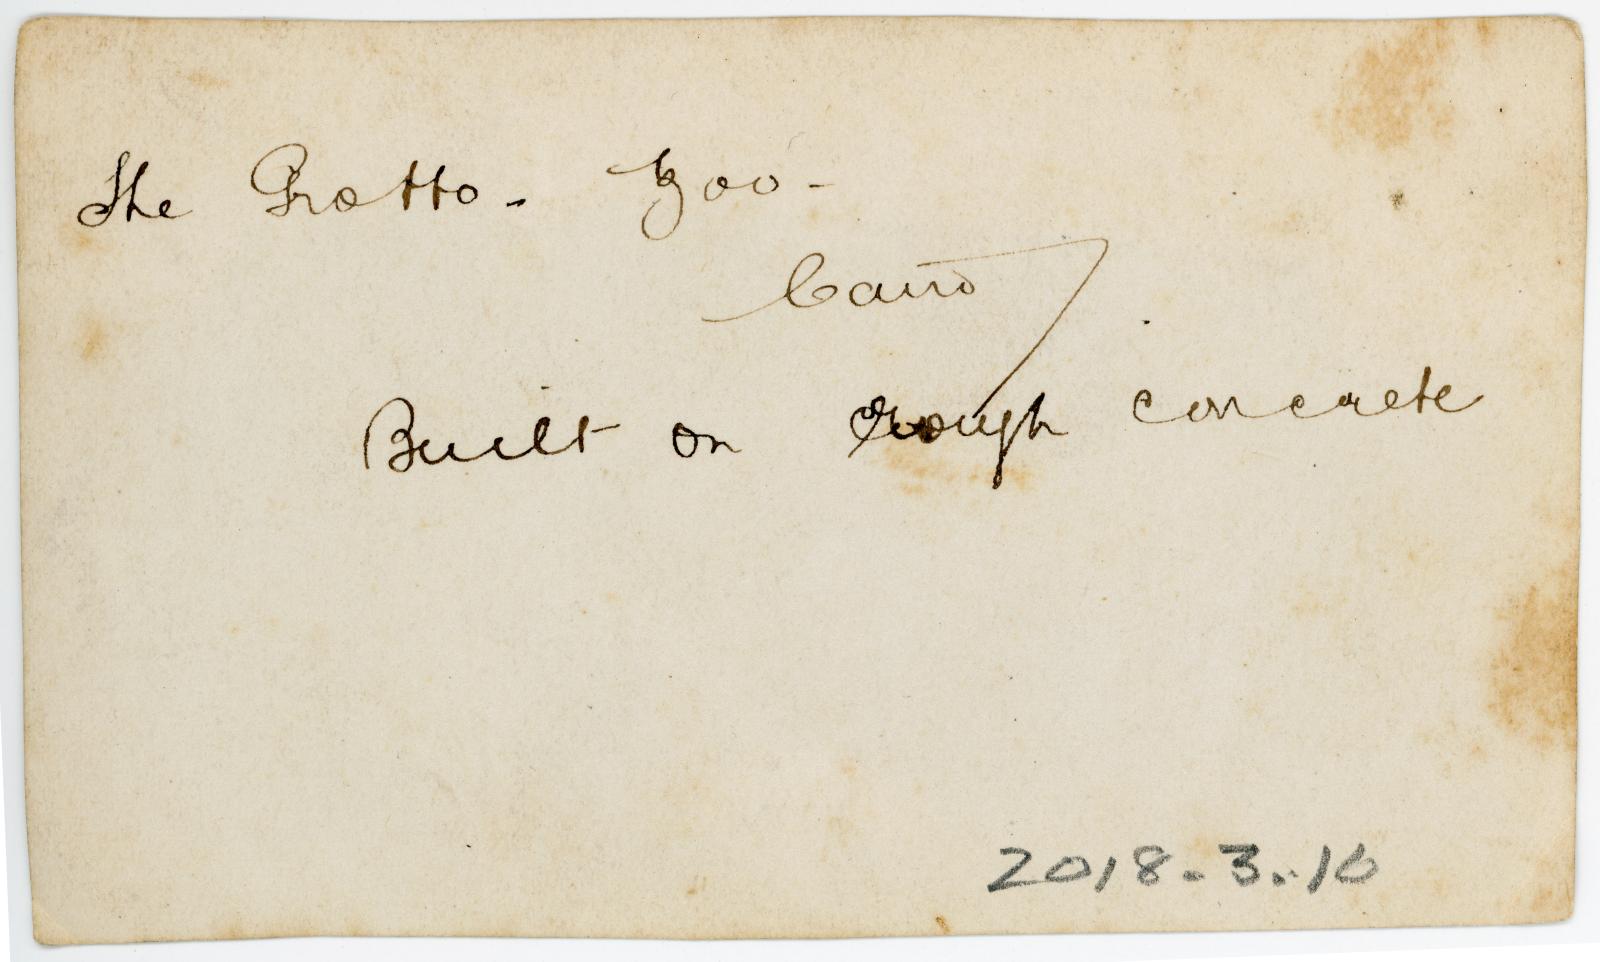 The Grotto - Zoo -
Cairo
Built on rough concrete
2018.3.16